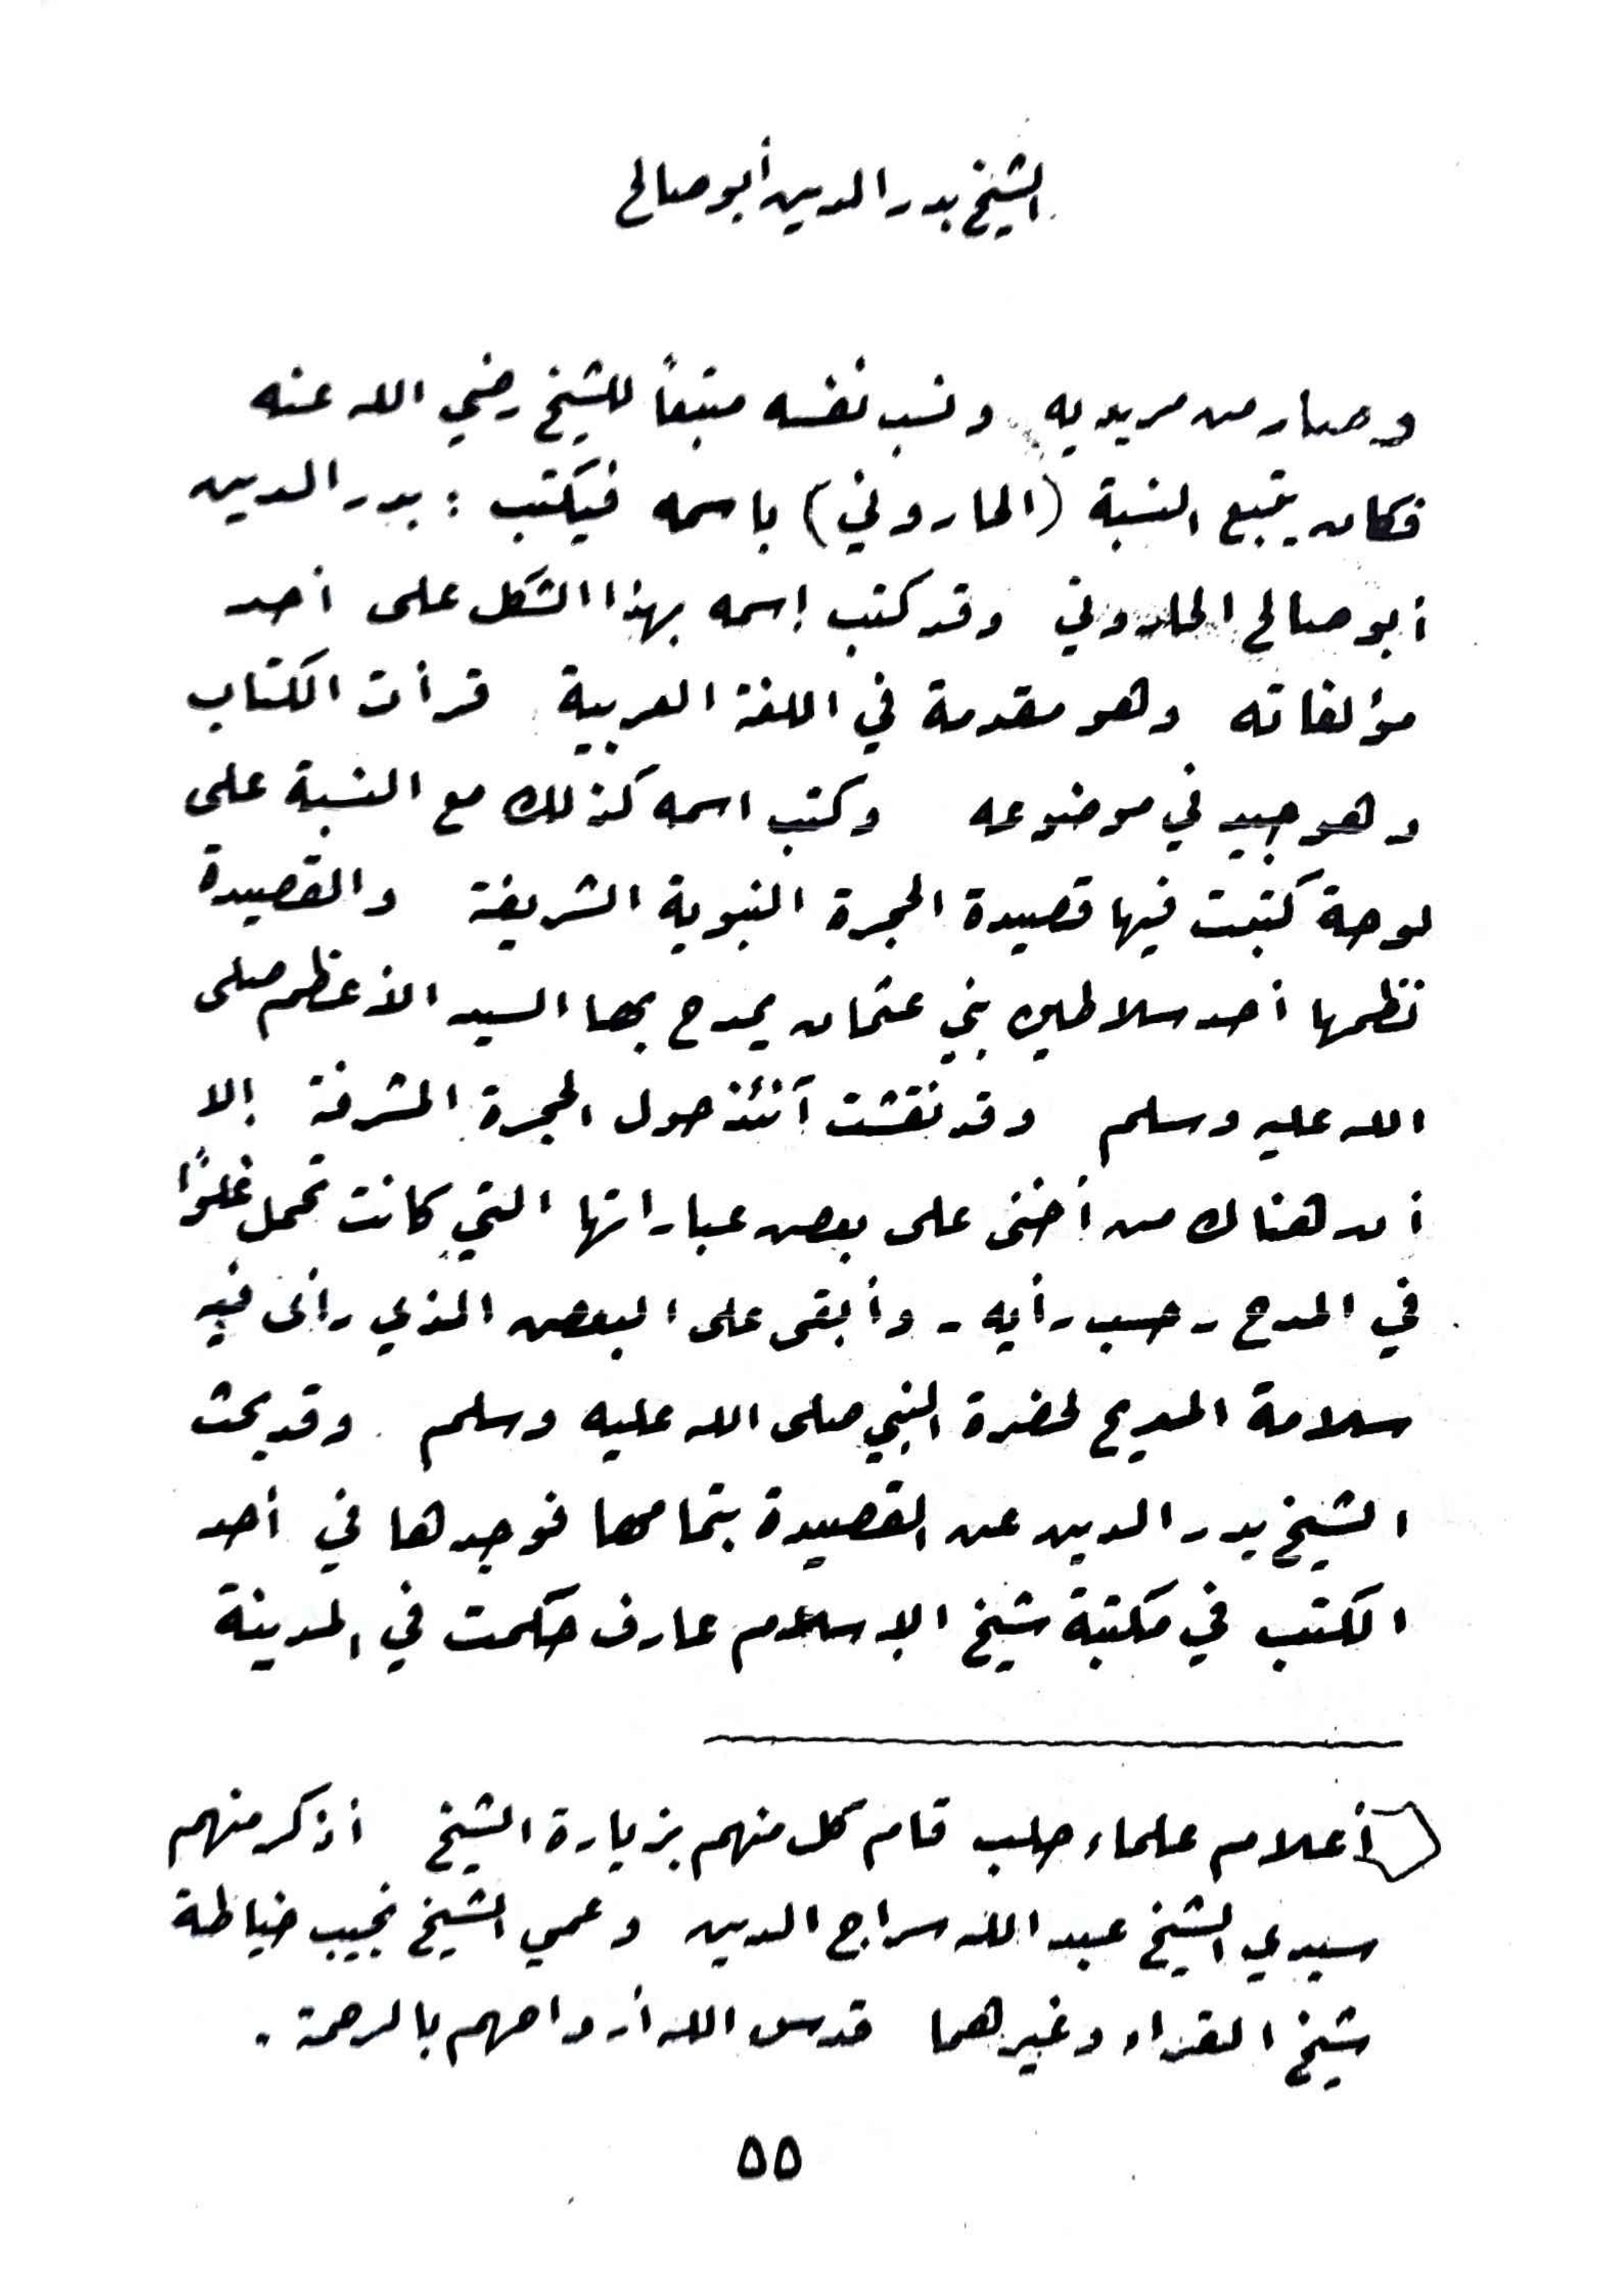 الشيخ بدر الدين أبو صالح
وصار من مريديه ونسب نفسه متبعاً للشيخ رضي الله عنه
فكان يتبع النسبة (الحاروني) باسمه فيكتب : بدر الدين
أبو صالح الحاروني وقد كتب إسمه بهذا الشكل على أحد
مؤلفاته وهو مقدمة في اللغة العربية قرأت الكتاب
وهو جيد في موضوعه وكتب اسمه كذلك مع النسبة على
لوحة كتبت فيها قصيدة الحجرة النبوية الشريفة والقصيدة
نظمها أحد سلاطين بني عثمان يمدح بها السيد الأعظم صلى
الله عليه وسلم وقد نقشت آنئذ حول الحجرة المشرفة إلا
أن هناك من أخفى على بعض عباراتها التي كانت تحمل غلوًا
في المدح - حسب رأيه - وأبقى على البعض الذي رأى فيه
سلامة المديح لحضرة النبي صلى الله عليه وسلم . وقد بحث
الشيخ بدر الدين عن القصيدة بتمامها فوجدها في أحد
الكتب في مكتبة شيخ الإسلام عارف حكمت في المدينة
أعلام علماء حلب قام كل منهم بزيارة الشيخ أذكر منهم
سيدي الشيخ عبد الله سراج الدين وعمي الشيخ نجيب خياطة
شيخ القراء وغيرهما قدس الله أرواحهم بالرحمة .
٥٥